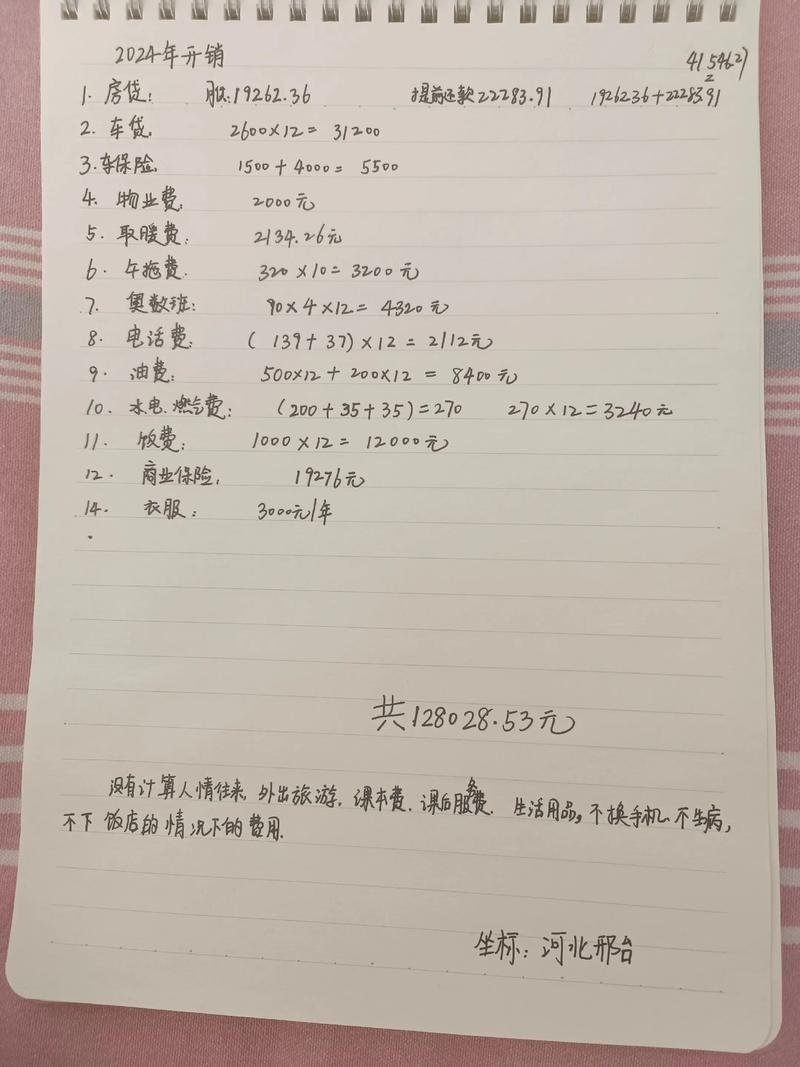 2024年开销
41546.27
1. 房贷: 19262.36 提前还款22283.91 19262.36+22283.91
2. 车贷, 2600×12= 31200
3. 车保险, 1500+4000= 5500
4. 物业费, 2000元
5. 取暖费: 2134.26元
6. 午拖费. 320×10=3200元
7. 奥数班: 90×4×12= 4320元
8. 电话费: (139+37)×12=2112元
9. 油费: 500×12+200×12 = 8400元
10. 水电.燃气费: (200+35+35)=270 270×12=3240元
11. 饭费: 1000×12= 12000元
12. 商业保险, 19276元
14. 衣服: 3000元/年
共128028.53元
没有计算人情往来,外出旅游,课本费,课后服务费,生活用品,不换手机.不生病,
不下饭店的情况下的费用.
坐标:河北邢台